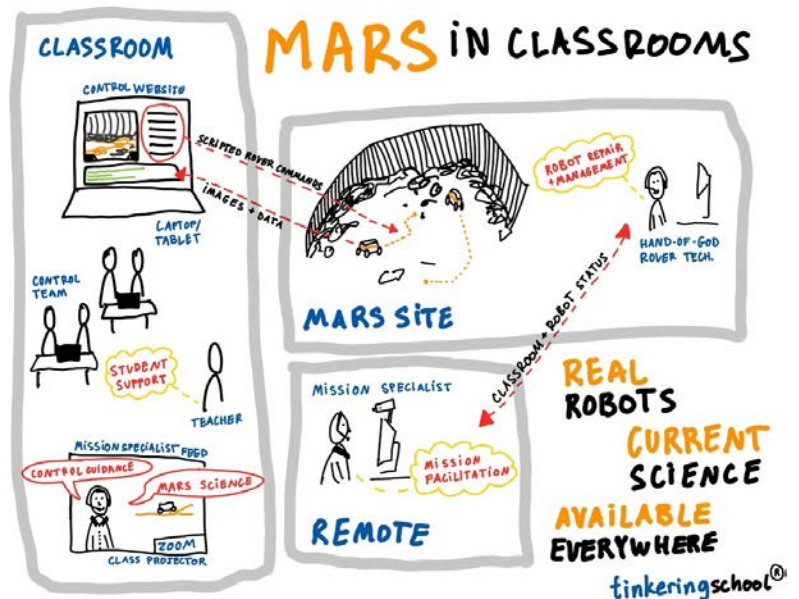 MARS IN CLASSROOMS
CLASSROOM
CONTROL WEBSITE
LAPTOP/
TABLET
SCRIPTED ROVER COMMANDS
IMAGES + DATA
CONTROL
TEAM
STUDENT
SUPPORT
TEACHER
MISSION SPECIALIST FEED
CONTROL GUIDANCE
MARS SCIENCE
ZOOM
CLASS PROJECTOR
ROBOT REPAIR
+ MANAGEMENT
HAND-OF-GOD
ROVER TECH.
MARS SITE
CLASSROOM + ROBOT STATUS
MISSION SPECIALIST
MISSION
FACILITATION
REMOTE
REAL
ROBOTS
CURRENT
SCIENCE
AVAILABLE
EVERYWHERE
tinkeringschool®